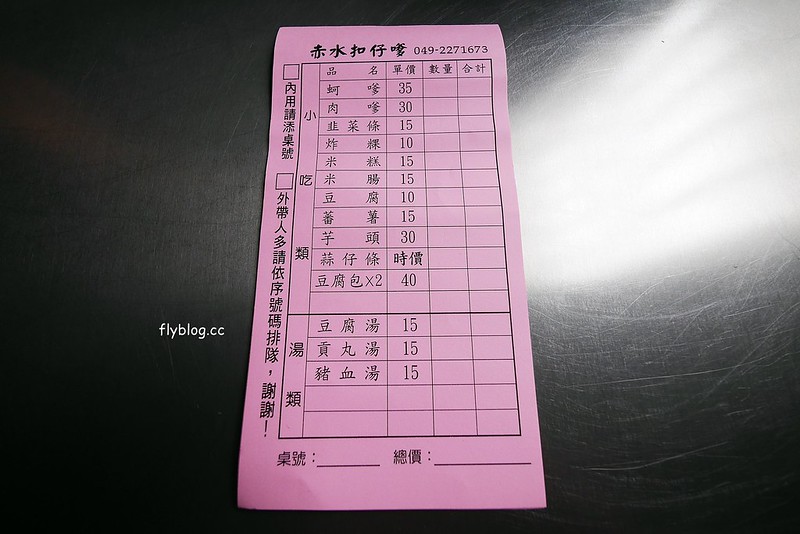 赤水扣仔嗲 049-2271673
品名 單價 數量 合計
小吃類
蚵嗲 35
肉嗲 30
韭菜條 15
炸粿 10
米糕 15
米腸 15
豆腐 10
蕃薯 15
芋頭 30
蒜仔條 時價
豆腐包×2 40
湯類
豆腐湯 15
貢丸湯 15
豬血湯 15
內用請添桌號
外帶人多請依序號碼排隊，謝謝！
桌號：
總價：
flyblog.cc